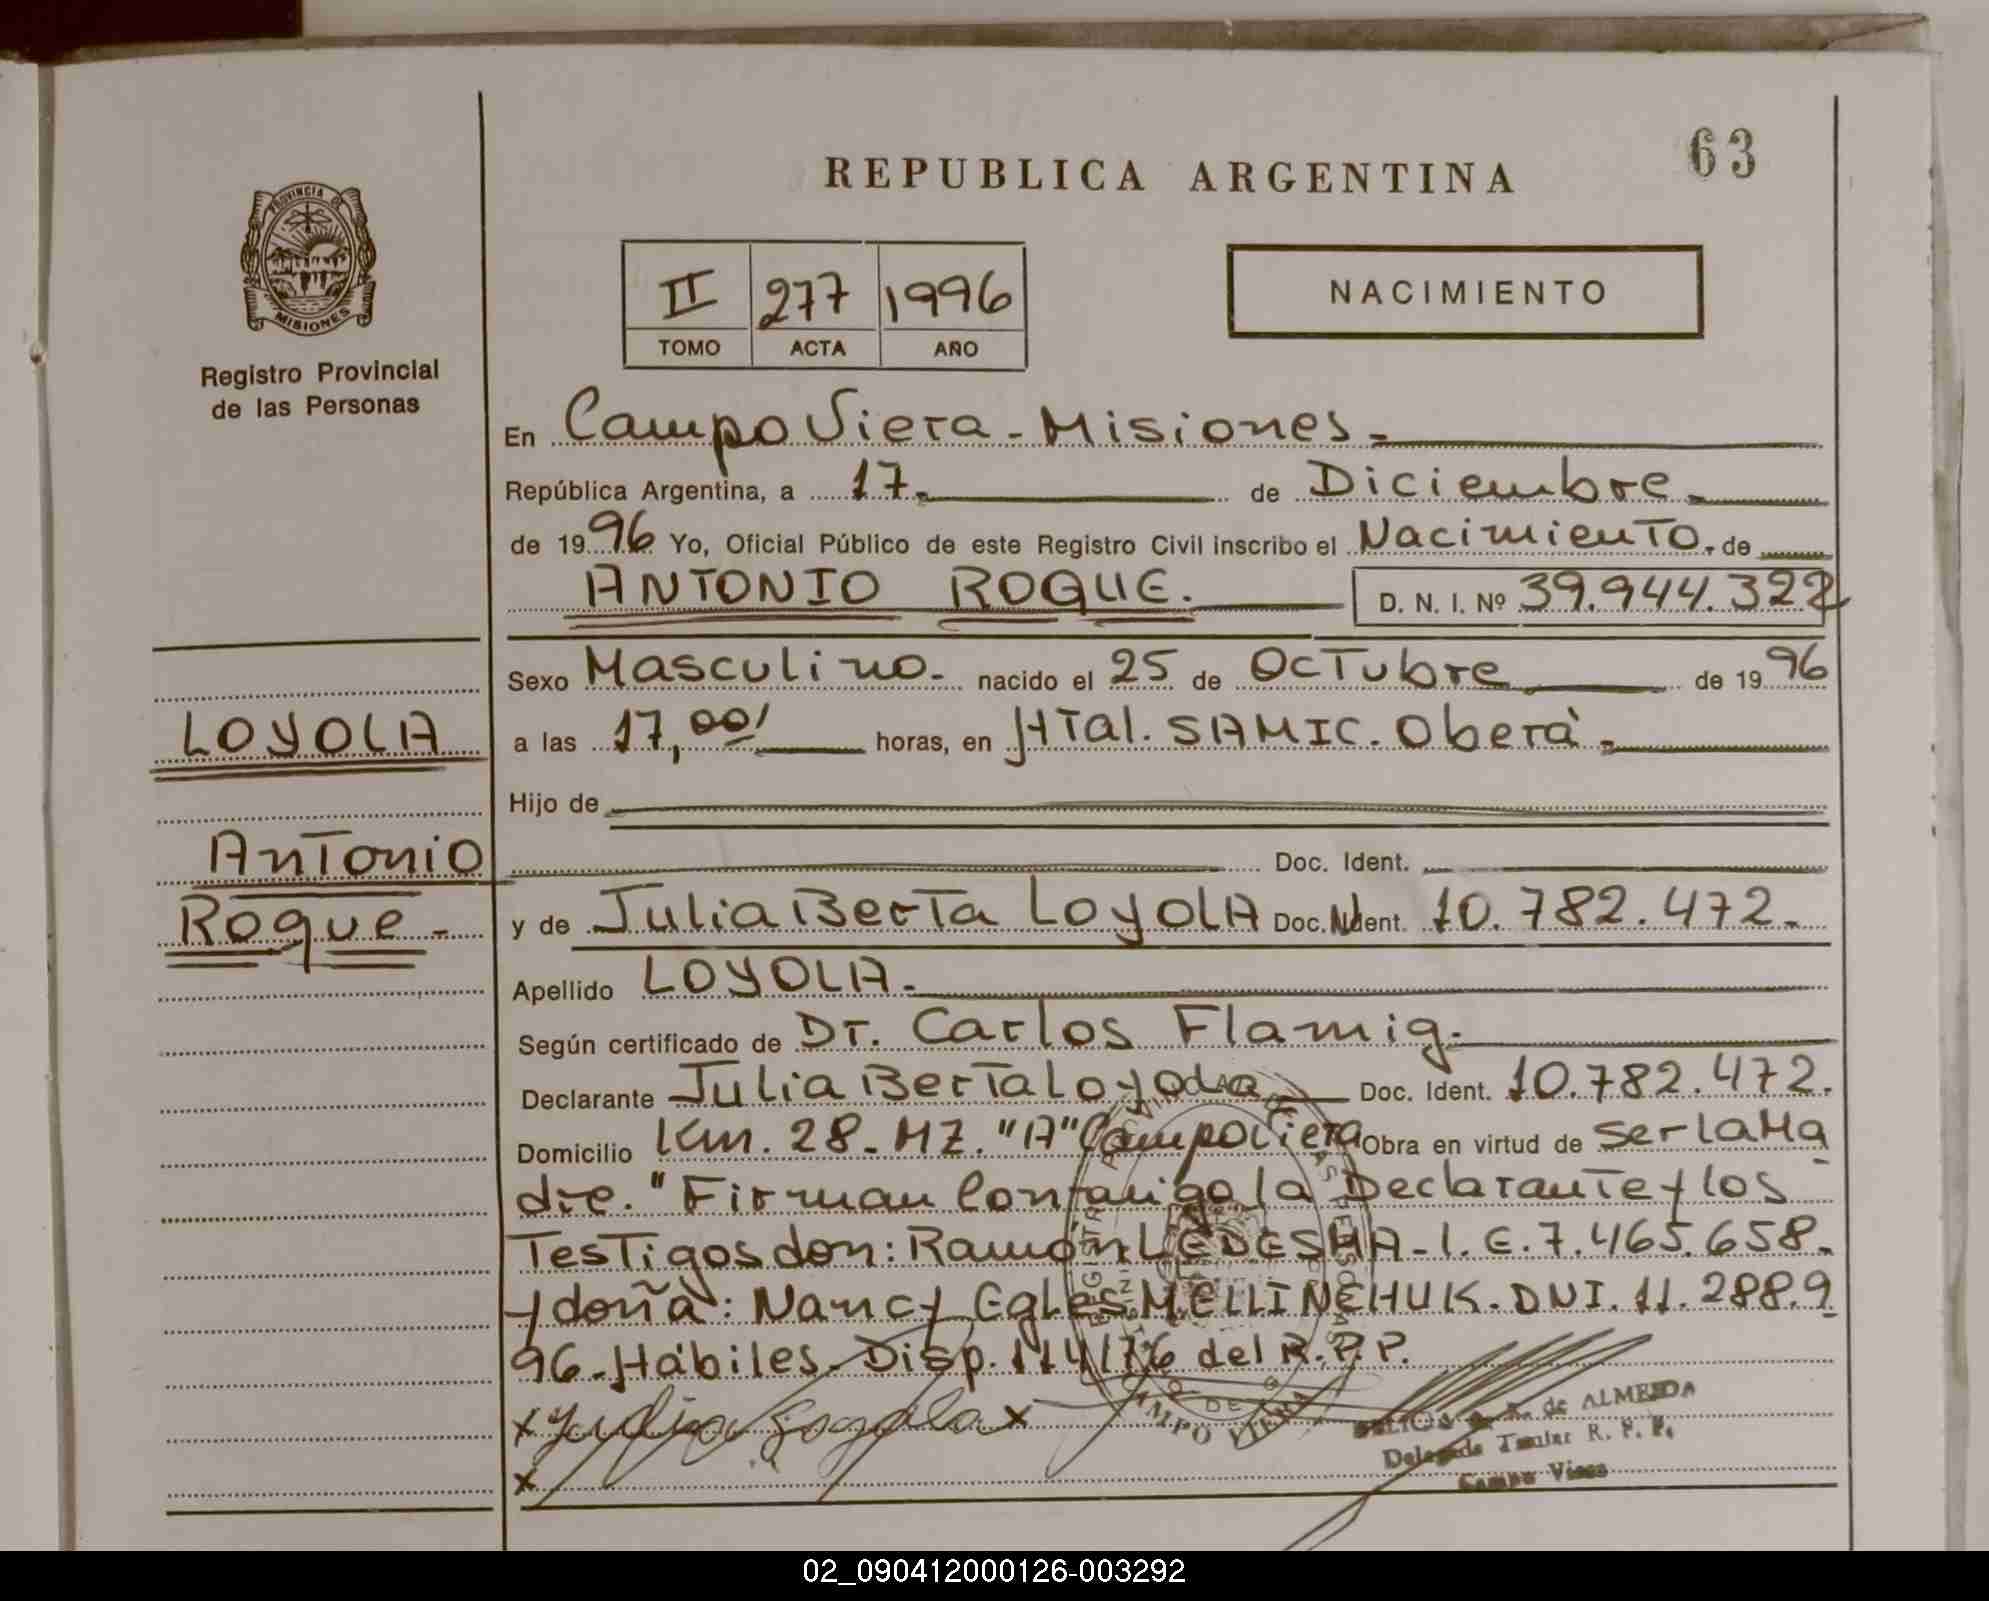 REPUBLICA ARGENTINA
63
PROVINCIA DE
MISIONES
Registro Provincial
de las Personas
II 277 1996
TOMO ACTA AÑO
NACIMIENTO
En Campo Viera - Misiones.-
República Argentina, a 17. de Diciembre.
de 1996 Yo, Oficial Público de este Registro Civil inscribo el Nacimiento. de
ANTONIO ROQUE. D. N. I. Nº 39.944.322
Sexo Masculino. nacido el 25 de Octubre de 1996
LOYOLA
a las 17,00' horas, en Htal. SAMIC. Oberá.
Hijo de
Antonio
Doc. Ident.
Roque.-
y de Julia Berta Loyola Doc. Ident. 10.782.472.-
Apellido LOYOLA.
Según certificado de Dr. Carlos Flamig.
Declarante Julia Berta Loyola Doc. Ident. 10.782.472.
Domicilio Km. 28 - MZ. "A" Campo Viera Obra en virtud de ser la Ma
dre. "Firman Conmigo la Declarante y los
Testigos don: Ramón LEDESMA - I. E. 7.465.658.
y doña: Nancy Egles MELLINCHUK. DNI. 11.288.9
96.- Hábiles. Disp. 114/76 del R.P.P.
x Julia Loyola x
x
de ALMEIDA
Delegada Titular R. P. P.
Campo Viera
CAMPO VIERA
02_090412000126-003292